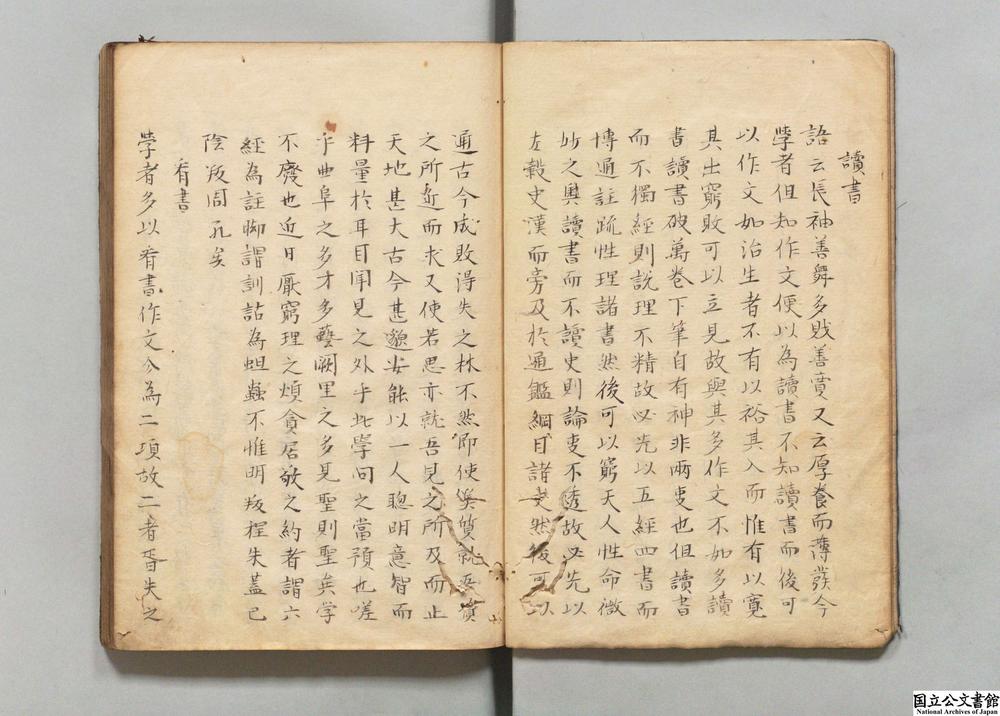 讀書
語云長袖善舞多財善賈又云厚養而薄發今
學者但知作文便以為讀書不知讀書而後可
以作文如治生者不有以裕其入而惟有以寬
其出窮敗可以立見故與其多作文不如多讀
書讀書破萬卷下筆自有神非兩事也但讀書
而不獨經則說理不精故必先以五經四書而
博通註疏性理諸書然後可以窮天人性命微
妙之輿讀書而不讀史則論事不透故必先以
左穀史漢而旁及於通鑑綱目諸史然後可以
通古今成敗得失之林不然即使美質就吾質
之所近而求又使若思亦就吾見之所及而止
天地甚大古今甚邈安能以一人聰明意智而
料量於耳目聞見之外乎此學問之當預也嗟
乎曲阜之多才多藝闕里之多見聖則聖矣学
不廢也近日厭窮理之煩貪居敬之約者謂六
經為註脚謂訓詁為蛆蟲不惟明叛程朱蓋已
陰叛周孔矣
看書
學者多以看書作文分為二項故二者胥失之
国立公文書館
National Archives of Japan